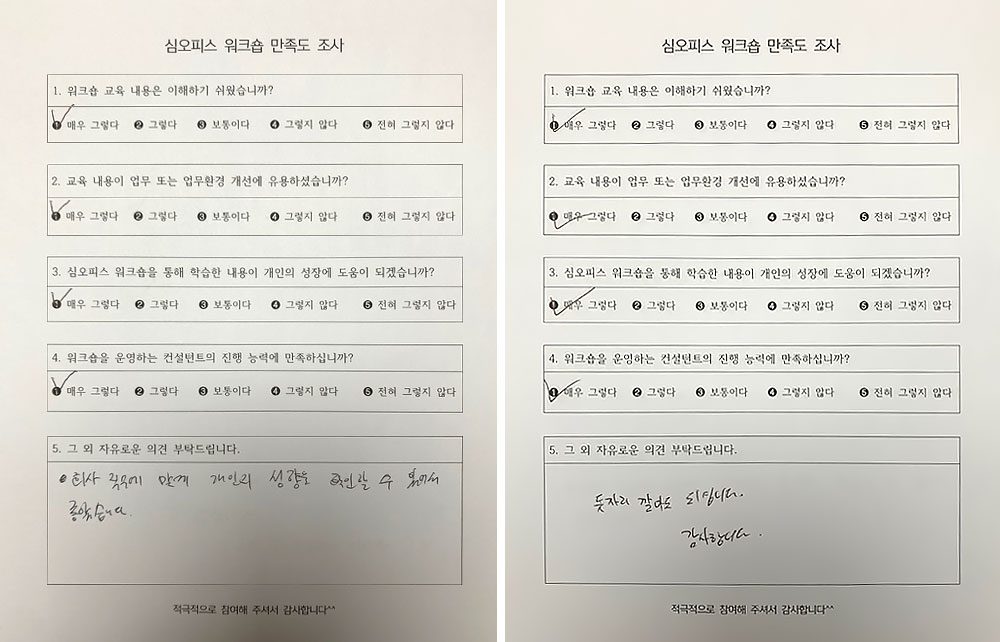 심오피스 워크숍 만족도 조사
1. 워크숍 교육 내용은 이해하기 쉬웠습니까?
❶ 매우 그렇다 ❷ 그렇다 ❸ 보통이다 ❹ 그렇지 않다 ❺ 전혀 그렇지 않다
2. 교육 내용이 업무 또는 업무환경 개선에 유용하셨습니까?
❶ 매우 그렇다 ❷ 그렇다 ❸ 보통이다 ❹ 그렇지 않다 ❺ 전혀 그렇지 않다
3. 심오피스 워크숍을 통해 학습한 내용이 개인의 성장에 도움이 되겠습니까?
❶ 매우 그렇다 ❷ 그렇다 ❸ 보통이다 ❹ 그렇지 않다 ❺ 전혀 그렇지 않다
4. 워크숍을 운영하는 컨설턴트의 진행 능력에 만족하십니까?
❶ 매우 그렇다 ❷ 그렇다 ❸ 보통이다 ❹ 그렇지 않다 ❺ 전혀 그렇지 않다
5. 그 외 자유로운 의견 부탁드립니다.
회사 직무에 맞게 개인의 성향을 확인할 수 있어서
좋았습니다.
적극적으로 참여해 주셔서 감사합니다^^
심오피스 워크숍 만족도 조사
1. 워크숍 교육 내용은 이해하기 쉬웠습니까?
❶ 매우 그렇다 ❷ 그렇다 ❸ 보통이다 ❹ 그렇지 않다 ❺ 전혀 그렇지 않다
2. 교육 내용이 업무 또는 업무환경 개선에 유용하셨습니까?
❶ 매우 그렇다 ❷ 그렇다 ❸ 보통이다 ❹ 그렇지 않다 ❺ 전혀 그렇지 않다
3. 심오피스 워크숍을 통해 학습한 내용이 개인의 성장에 도움이 되겠습니까?
❶ 매우 그렇다 ❷ 그렇다 ❸ 보통이다 ❹ 그렇지 않다 ❺ 전혀 그렇지 않다
4. 워크숍을 운영하는 컨설턴트의 진행 능력에 만족하십니까?
❶ 매우 그렇다 ❷ 그렇다 ❸ 보통이다 ❹ 그렇지 않다 ❺ 전혀 그렇지 않다
5. 그 외 자유로운 의견 부탁드립니다.
돗자리 깔아도 되겠습니다.
감사합니다.
적극적으로 참여해 주셔서 감사합니다^^